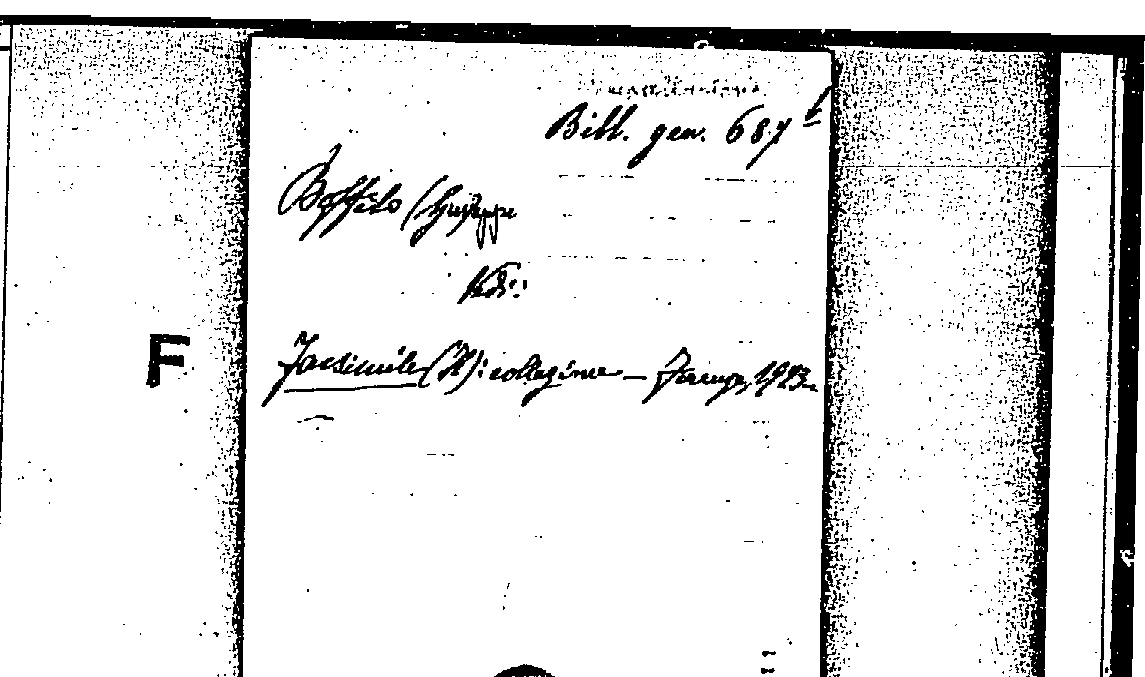 Bibl. gen. 687 b
Boffito (Giuseppe
Vedi:
F
Facsimile (Il): collezione — Firenze, 1923.